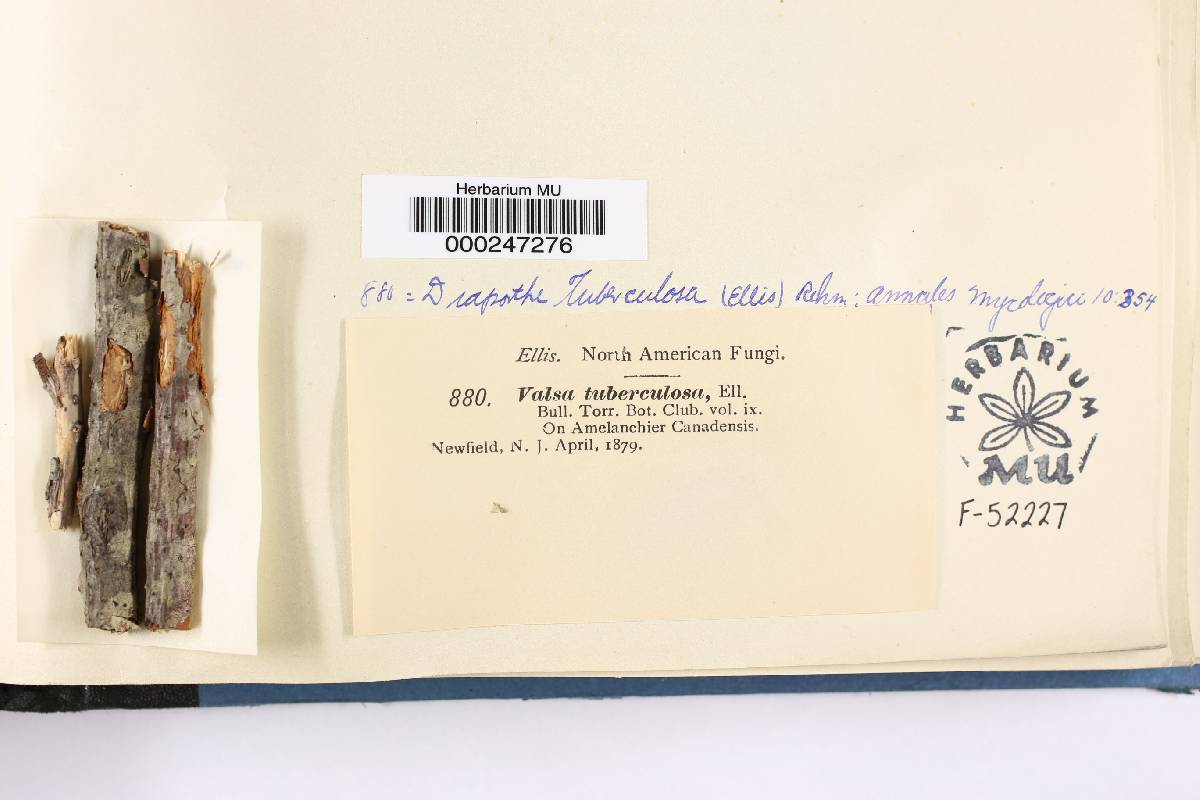 Herbarium MU
000247276
880 = Diaporthe Tuberculosa (Ellis) Rehm: Annales Mycologici 10:354
Ellis. North American Fungi.
880. Valsa tuberculosa, Ell.
Bull. Torr. Bot. Club. vol. ix.
On Amelanchier Canadensis.
Newfield, N. J. April, 1879.
HERBARIUM
MU
F-52227